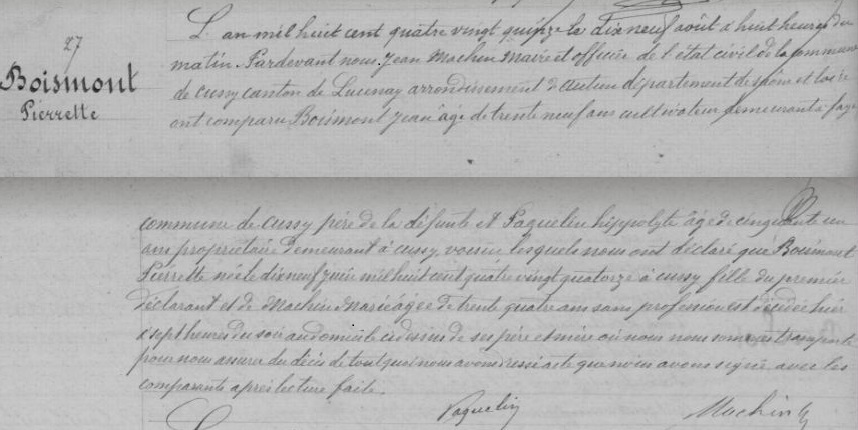 27
Boismont
Pierrette
L'an mil huit cent quatre vingt quinze le dix neuf août à huit heures du
matin. Pardevant nous Jean Machin Maire et officier de l'état civil de la commune
de Cussy canton de Lucenay arrondissement d'autun département de saône et loire
ont comparu Boismont Jean âgé de trente neuf ans cultivateur demeurant à
commune de Cussy père de la défunte et Paquelin hippolyte âgé de cinquante un
ans propriétaire demeurant à cussy, voisin, lesquels nous ont déclaré que Boismont
Pierrette née le dix neuf juin mil huit cent quatre vingt quatorze à cussy fille du premier
déclarant et de Machin Marie âgée de trente quatre ans sans profession est décédée hier
à sept heures du soir au domicile ci dessus de ses père et mère où nous nous sommes transporté
pour nous assurer du décès de tout quoi nous avons dressé acte que nous avons signé avec les
comparants après lecture faite.
Paquelin
Machin